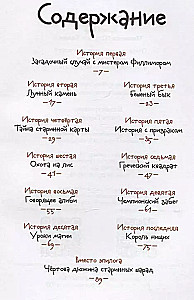 Содержание
История первая
Загадочный случай с мистером Филлимором
–7–
История вторая
Лунный камень
–17–
История третья
Бык
–23–
История четвёртая
Тайна старинной карты
–29–
История пятая
История с призраком
–35–
История шестая
Охота на лис
–41–
История седьмая
Греческий квадрат
–47–
История восьмая
Говорящее алиби
–55–
История девятая
Чемпионский забег
–61–
История десятая
Уроки магии
–69–
История последняя
Король нищих
–75–
Вместо эпилога
Чёртова дюжина старинных шарад
–89–